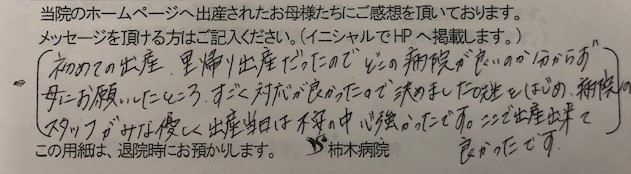 当院のホームページへ出産されたお母様たちにご感想を頂いております。
メッセージを頂ける方はご記入ください。(イニシャルでHPへ掲載します。)
初めての出産、里帰り出産だったのでどこの病院が良いのか分からず
母にお願いしたところ、すごく対応が良かったので決めました。先生をはじめ、病院の
スタッフがみな優しく出産当日は不安の中心強かったです。ここで出産出来て
良かったです。
この用紙は、退院時にお預かりします。 柿木病院